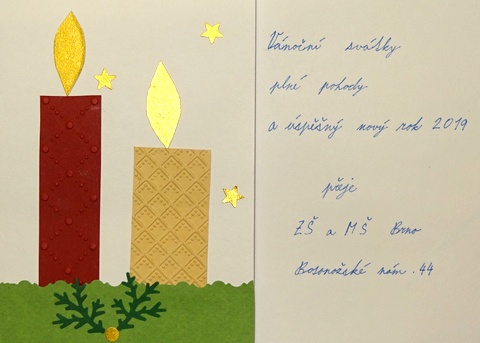 Vánoční svátky
plné pohody
a úspěšný nový rok 2019
přeje
ZŠ a MŠ Brno
Bosonožské nám. 44